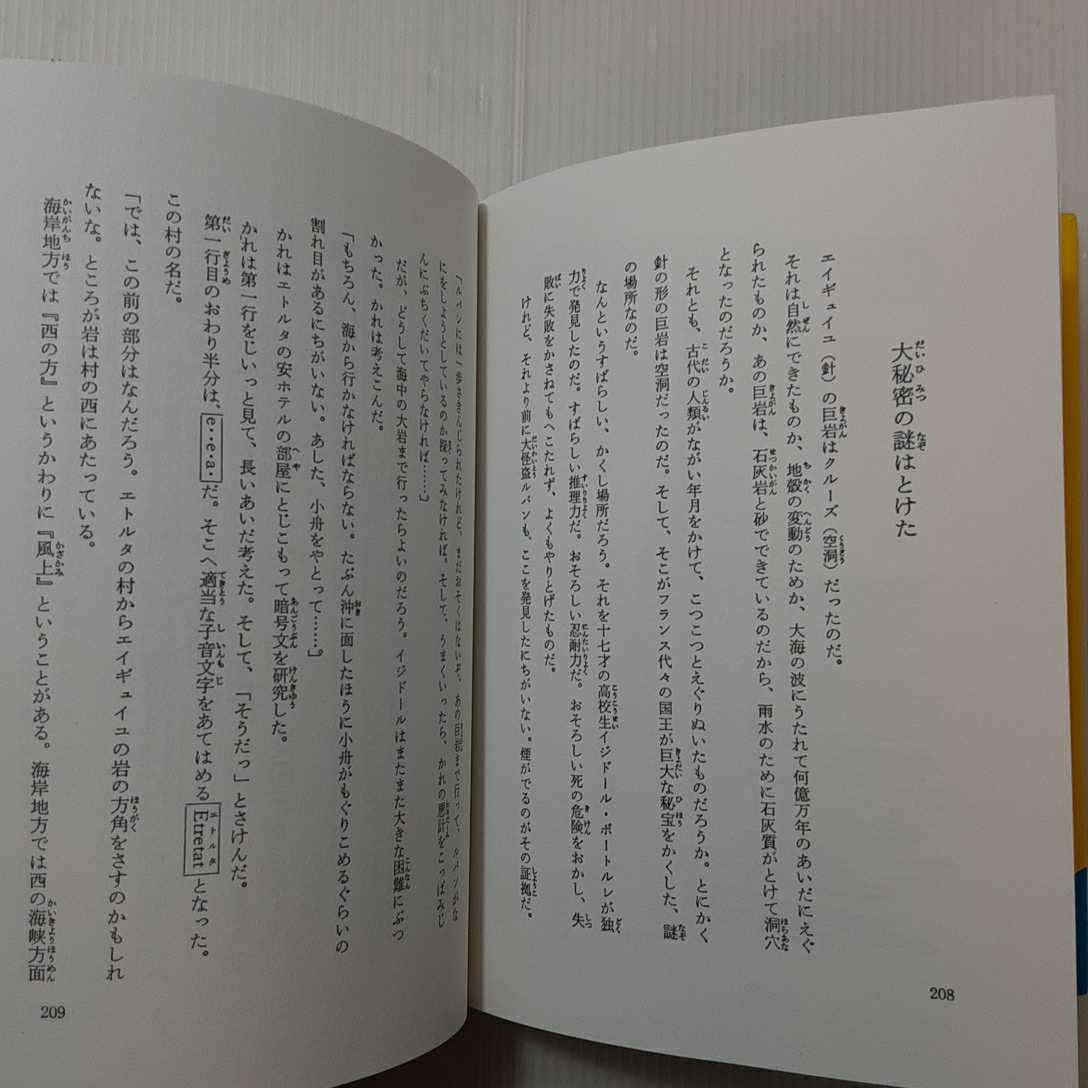 大秘密の謎はとけた
エイギュイユ（針）の巨岩はクルーズ（空洞）だったのだ。
それは自然にできたものか、地殻の変動のためか、大海の波にうたれて何億万年のあいだにえぐ
られたものか、あの巨岩は、石灰岩と砂でできているのだから、雨水のために石灰質がとけて洞穴
となったのだろうか。
それとも、古代の人類がながい年月をかけて、こつこつとえぐりぬいたものだろうか。とにかく
針の形の巨岩は空洞だったのだ。そして、そこがフランス代々の国王が巨大な秘宝をかくした、謎
の場所なのだ。
なんというすばらしい、かくし場所だろう。それを十七才の高校生イジドール・ボートルレが独
力で発見したのだ。すばらしい推理力だ。おそろしい忍耐力だ。おそろしい死の危険をおかし、失
敗に失敗をかさねてもへこたれず、よくもやりとげたものだ。
けれど、それより前に大怪盗ルパンも、ここを発見したにちがいない。煙がでるのがその証拠だ。
208
「ルパンには一歩さきんじられたけれど、まだおそくはないぞ。あの巨岩まで行って、ルパンがな
にをしようとしているのか探ってみなければ。そして、うまくいったら、かれの悪計をこっぱみじ
んにぶちくだいてやらなければ……」
だが、どうして海中の大岩まで行ったらよいのだろう。イジドールはまたまた大きな困難にぶつ
かった。かれは考えこんだ。
「もちろん、海から行かなければならない。たぶん沖に面したほうに小舟がもぐりこめるぐらいの
割れ目があるにちがいない。あした、小舟をやとって……」
かれはエトルタの安ホテルの部屋にとじこもって暗号文を研究した。
かれは第一行をじいっと見て、長いあいだ考えた。そして、「そうだっ」とさけんだ。
第一行目のおわり半分は、e・・e・a・だ。そこへ適当な子音文字をあてはめるEtretatとなった。
この村の名だ。
「では、この前の部分はなんだろう。エトルタの村からエイギュイユの岩の方角をさすのかもしれ
ないな。ところが岩は村の西にあたっている。
海岸地方では『西の方』というかわりに『風上』ということがある。海岸地方では西の海峡方面
209